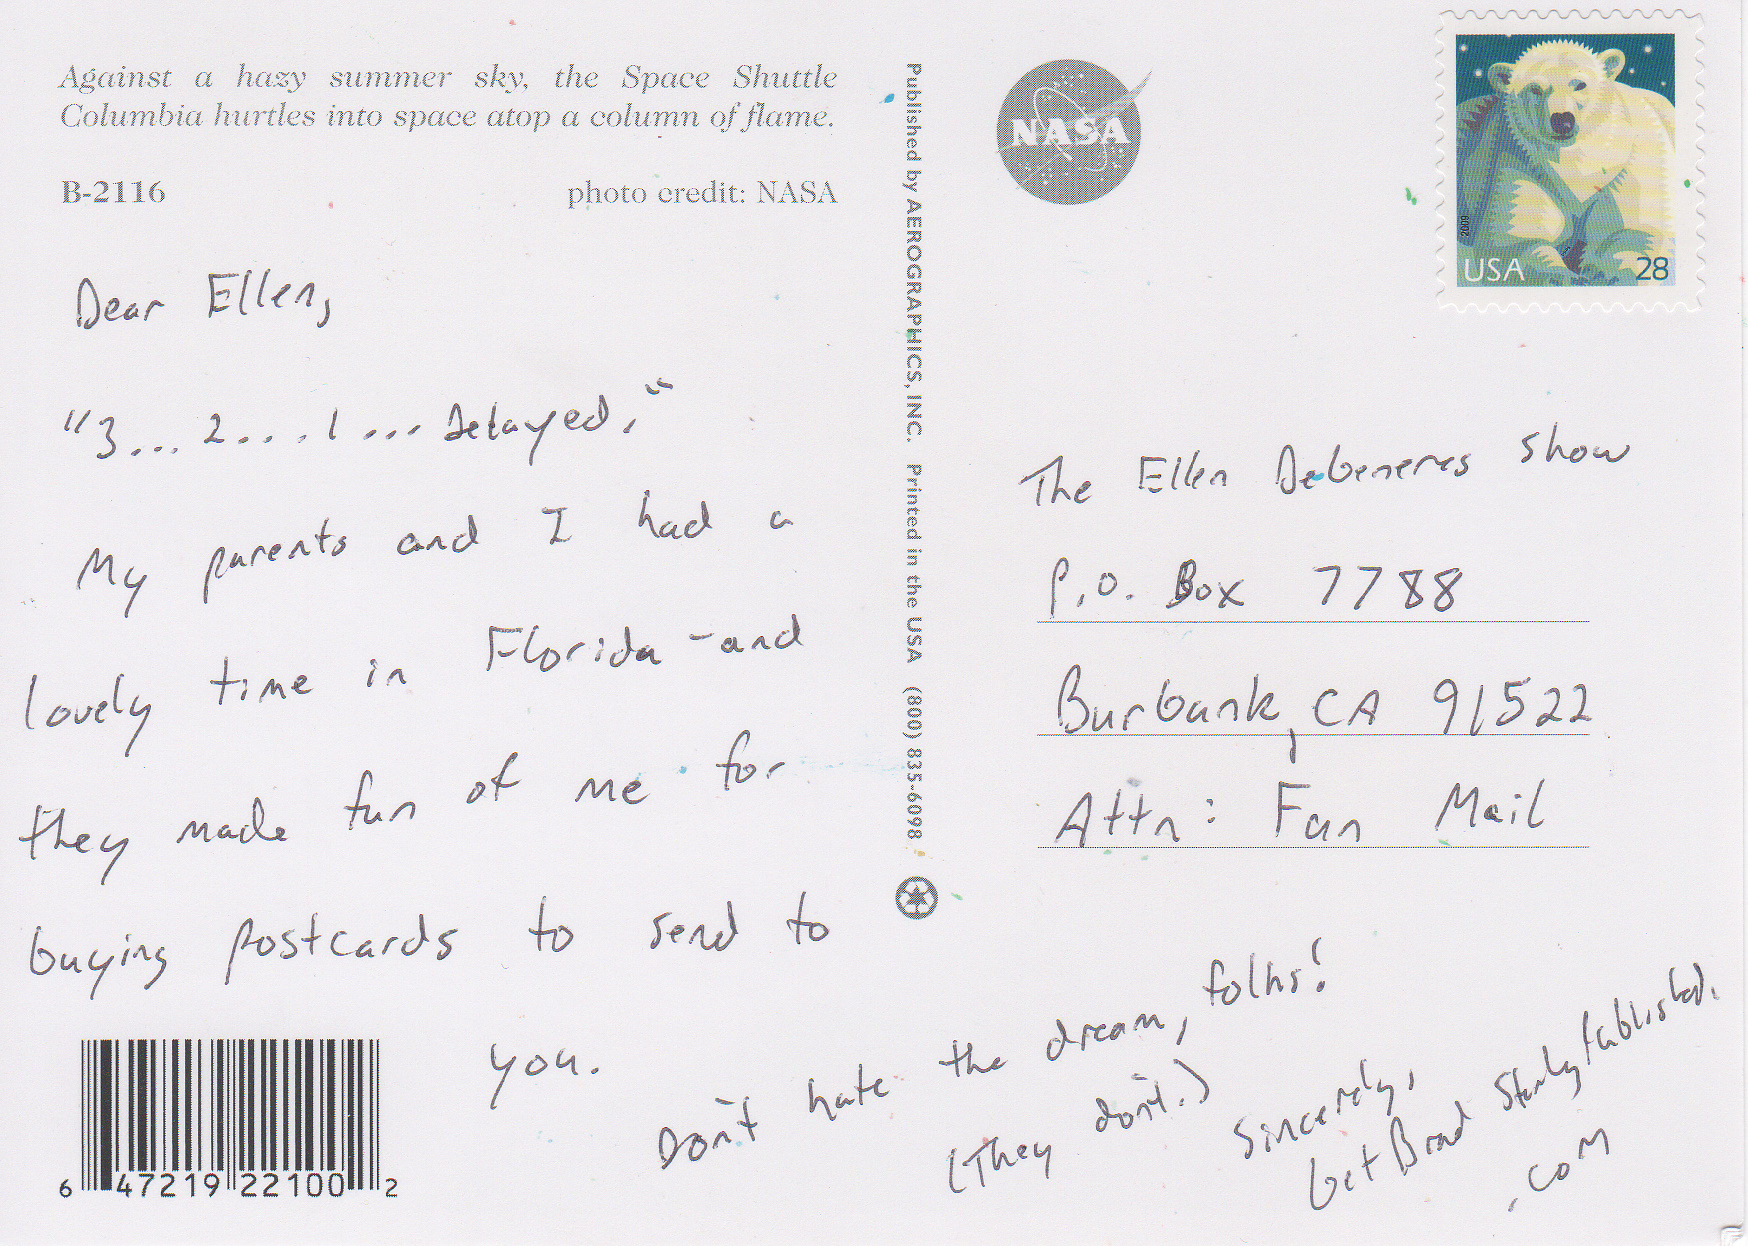 Against a hazy summer sky, the Space Shuttle
Columbia hurtles into space atop a column of flame.
B-2116 photo credit: NASA
Dear Ellen,
"3... 2... 1... Delayed."
My parents and I had a
lovely time in Florida - and
they made fun of me for
buying postcards to send to
you.
Don't hate the dream, folks!
(They don't.)
Sincerely,
GetBradStanleyPublished.
.com
6 47219 22100 2
Published by AEROGRAPHICS, INC. Printed in the USA (800) 835-6098
NASA
2009
USA 28
The Ellen Degeneres Show
P.O. Box 7788
Burbank, CA 91522
Attn: Fan Mail